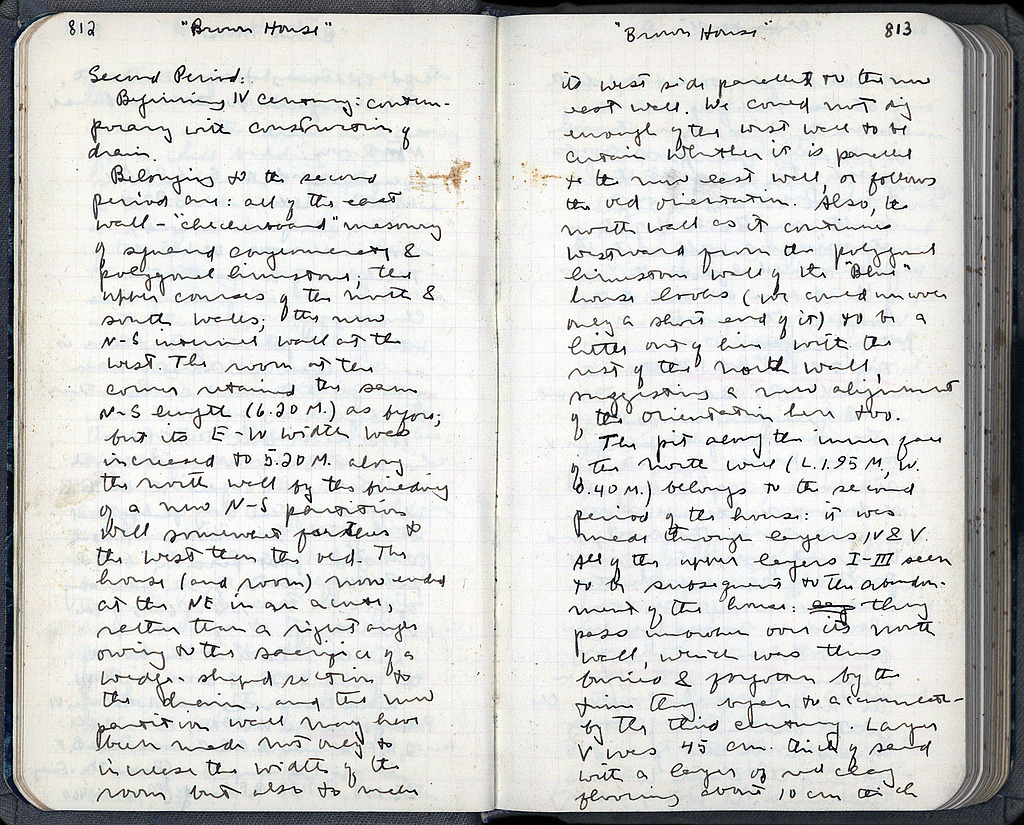 812 "Brown House"
Second Period:
Beginning IV century: contem-
porary with construction of
drain.
Belonging to the second
period are: all of the east
wall - "checkerboard" masonry
of squared conglomerate &
polygonal limestone; the
upper courses of the north &
south walls; the new
N-S internal wall at the
west. The room at the
corner retained the same
N-S length (6.20 M.) as before;
but its E-W width was
increased to 5.20 M. along
the north wall by the building
of a new N-S partition
wall somewhat farther to
the west than the old. The
house (and room) now ended
at the NE in an acute,
rather than a right angle
owing to the sacrifice of a
wedge-shaped section to
the drain, and the new
partition wall may have
been made not only to
increase the width of the
room but also to make
"Brown House" 813
its west side parallel to the new
east wall. We could not dig
enough of the west wall to be
certain whether it is parallel
to the new east wall, or follows
the old orientation. Also, the
north wall as it continues
westward from the polygonal
limestone wall of the "Blue"
house looks (we could uncover
only a short end of it) to be a
little out of line with the
rest of the north wall,
suggesting a new alignment
of the orientation here too.
The pit along the inner face
of the north wall (L. 1.95 M., W.
0.40 M.) belongs to the second
period of the house: it was
made through layers IV & V.
All of the upper layers I-III seem
to be subsequent to the abandon-
ment of the house: they
pass unbroken over its north
wall, which was thus
buried & forgotten by the
time they began to accumulate-
by the third century. Layer
V was 45 cm. thick of sand
with a layer of red clay
flooring about 10 cm thick